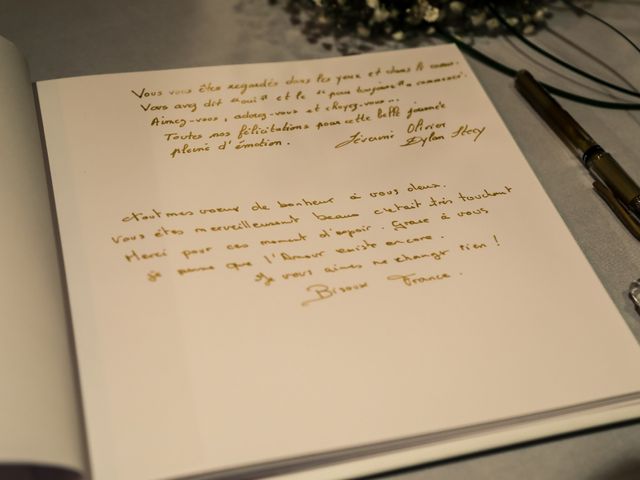 Vous vous êtes regardés dans les yeux et dans le coeur.
Vous avez dit "oui" et le "pour toujours" a commencé.
Aimez-vous, adorez-vous et choyez-vous...
Toutes nos félicitations pour cette belle journée
pleine d'émotion. Séverine Olivier
Dylan Stecy
tout mes voeux de bonheur à vous deux.
Vous êtes merveilleusement beaux c'était très touchant
Merci pour ces moment d'espoir. Grace à vous
je pense que l'Amour existe encore.
Je vous aimes ne changer rien !
Bisoux France.